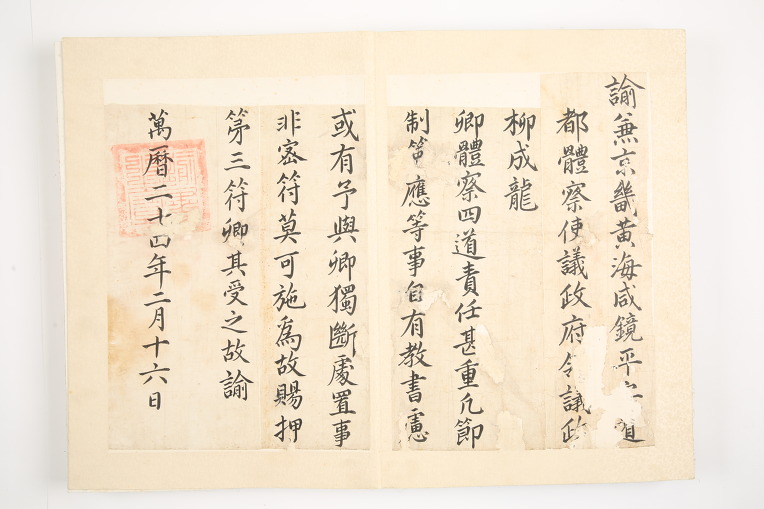 諭兼京畿黃海咸鏡平道
都體察使議政府令議政
柳成龍
卿體察四道責任甚重凡節
制策應等事自有教書慮
或有予與卿獨斷處置事
非密符莫可施爲故賜押
第三符卿其受之故諭
萬曆二十四年二月十六日